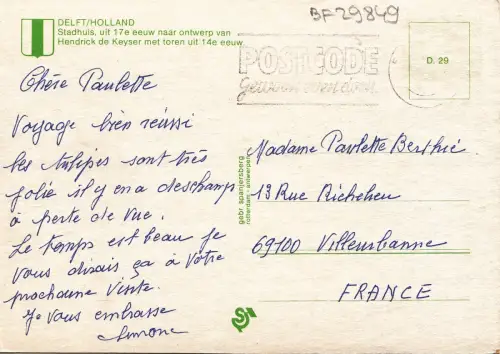 DELFT/HOLLAND
Stadhuis, uit 17e eeuw naar ontwerp van
Hendrick de Keyser met toren uit 14e eeuw
BF29849
POSTCODE
D. 29
Chère Paulette
Voyage bien réussi
Les tulipes sont très
jolie il y en a des champs
à perte de vue.
Le temps est beau je
vous dirais ça à votre
prochaine visite.
Je vous embrasse
Simone
gebr spanjersberg
rotterdam - antwerpen
Madame Paulette Berthié
13 Rue Richelieu
69100 Villeurbanne
FRANCE